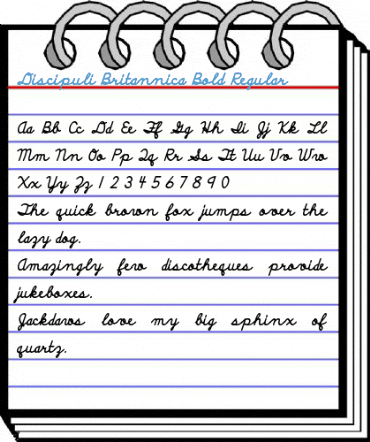 Discipuli Britannica Bold Regular
Aa Bb Cc Dd Ee Ff Gg Hh Ii Jj Kk Ll
Mm Nn Oo Pp Qq Rr Ss Tt Uu Vv Ww
Xx Yy Zz 1 2 3 4 5 6 7 8 9 0
The quick brown fox jumps over the
lazy dog.
Amazingly few discotheques provide
jukeboxes.
Jackdaws love my big sphinx of
quartz.